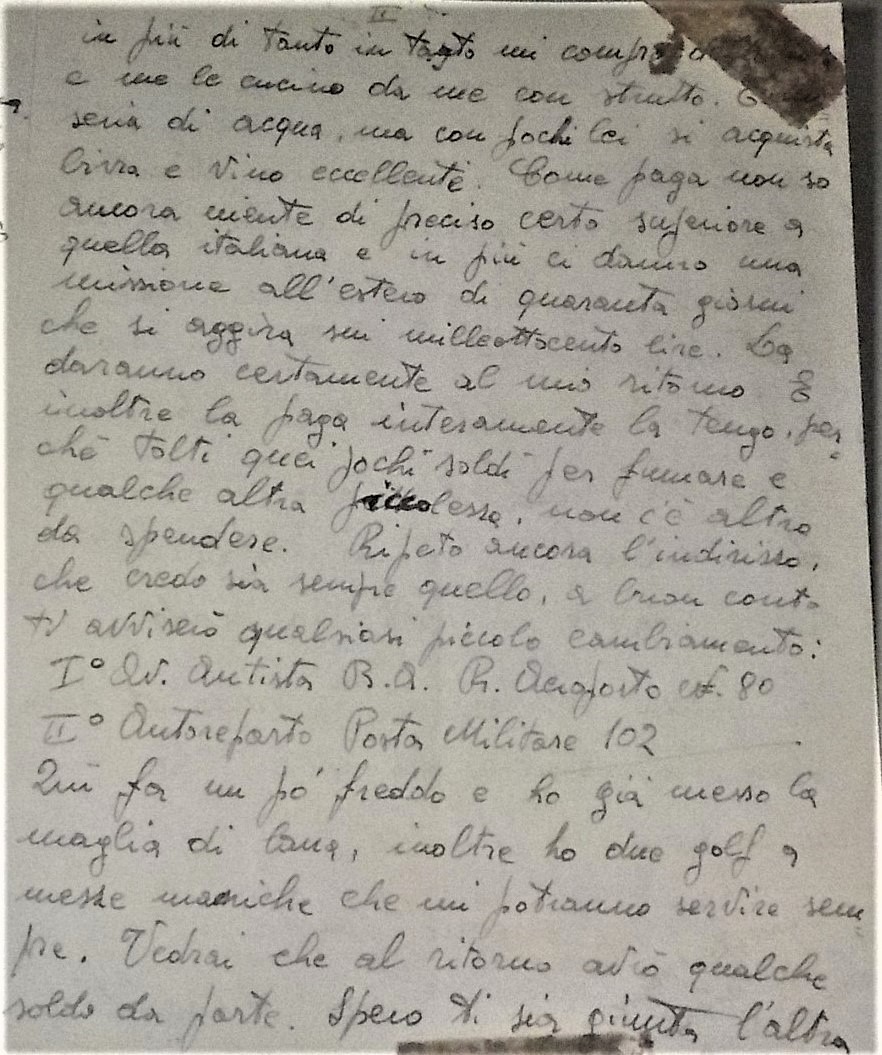 II
in più di tanto in tanto mi compro
e me le cucino da me con strutto.
seria di acqua, ma con pochi lei si acquista
birra e vino eccellente. Come paga non so
ancora niente di preciso certo superiore a
quella italiana e in più ci danno una
missione all'estero di quaranta giorni
che si aggira sui milleottocento lire. La
daranno certamente al mio ritorno. E
inoltre la paga interamente la tengo, per=
chè tolti quei pochi soldi per fumare e
qualche altra piccolezza, non c'è altro
da spendere. Ripeto ancora l'indirizzo,
che credo sia sempre quello, a buon conto
ti avviserò qualsiasi piccolo cambiamento:
I° Av. Autista R.A. R. Aeroporto 80
II° Autoreparto Posta Militare 102
Qui fa un pó freddo e ho già messo la
maglia di lana, inoltre ho due golf a
mezze maniche che mi potranno servire sem=
pre. Vedrai che al ritorno avrò qualche
soldo da parte. Spero ti sia giunta l'altra